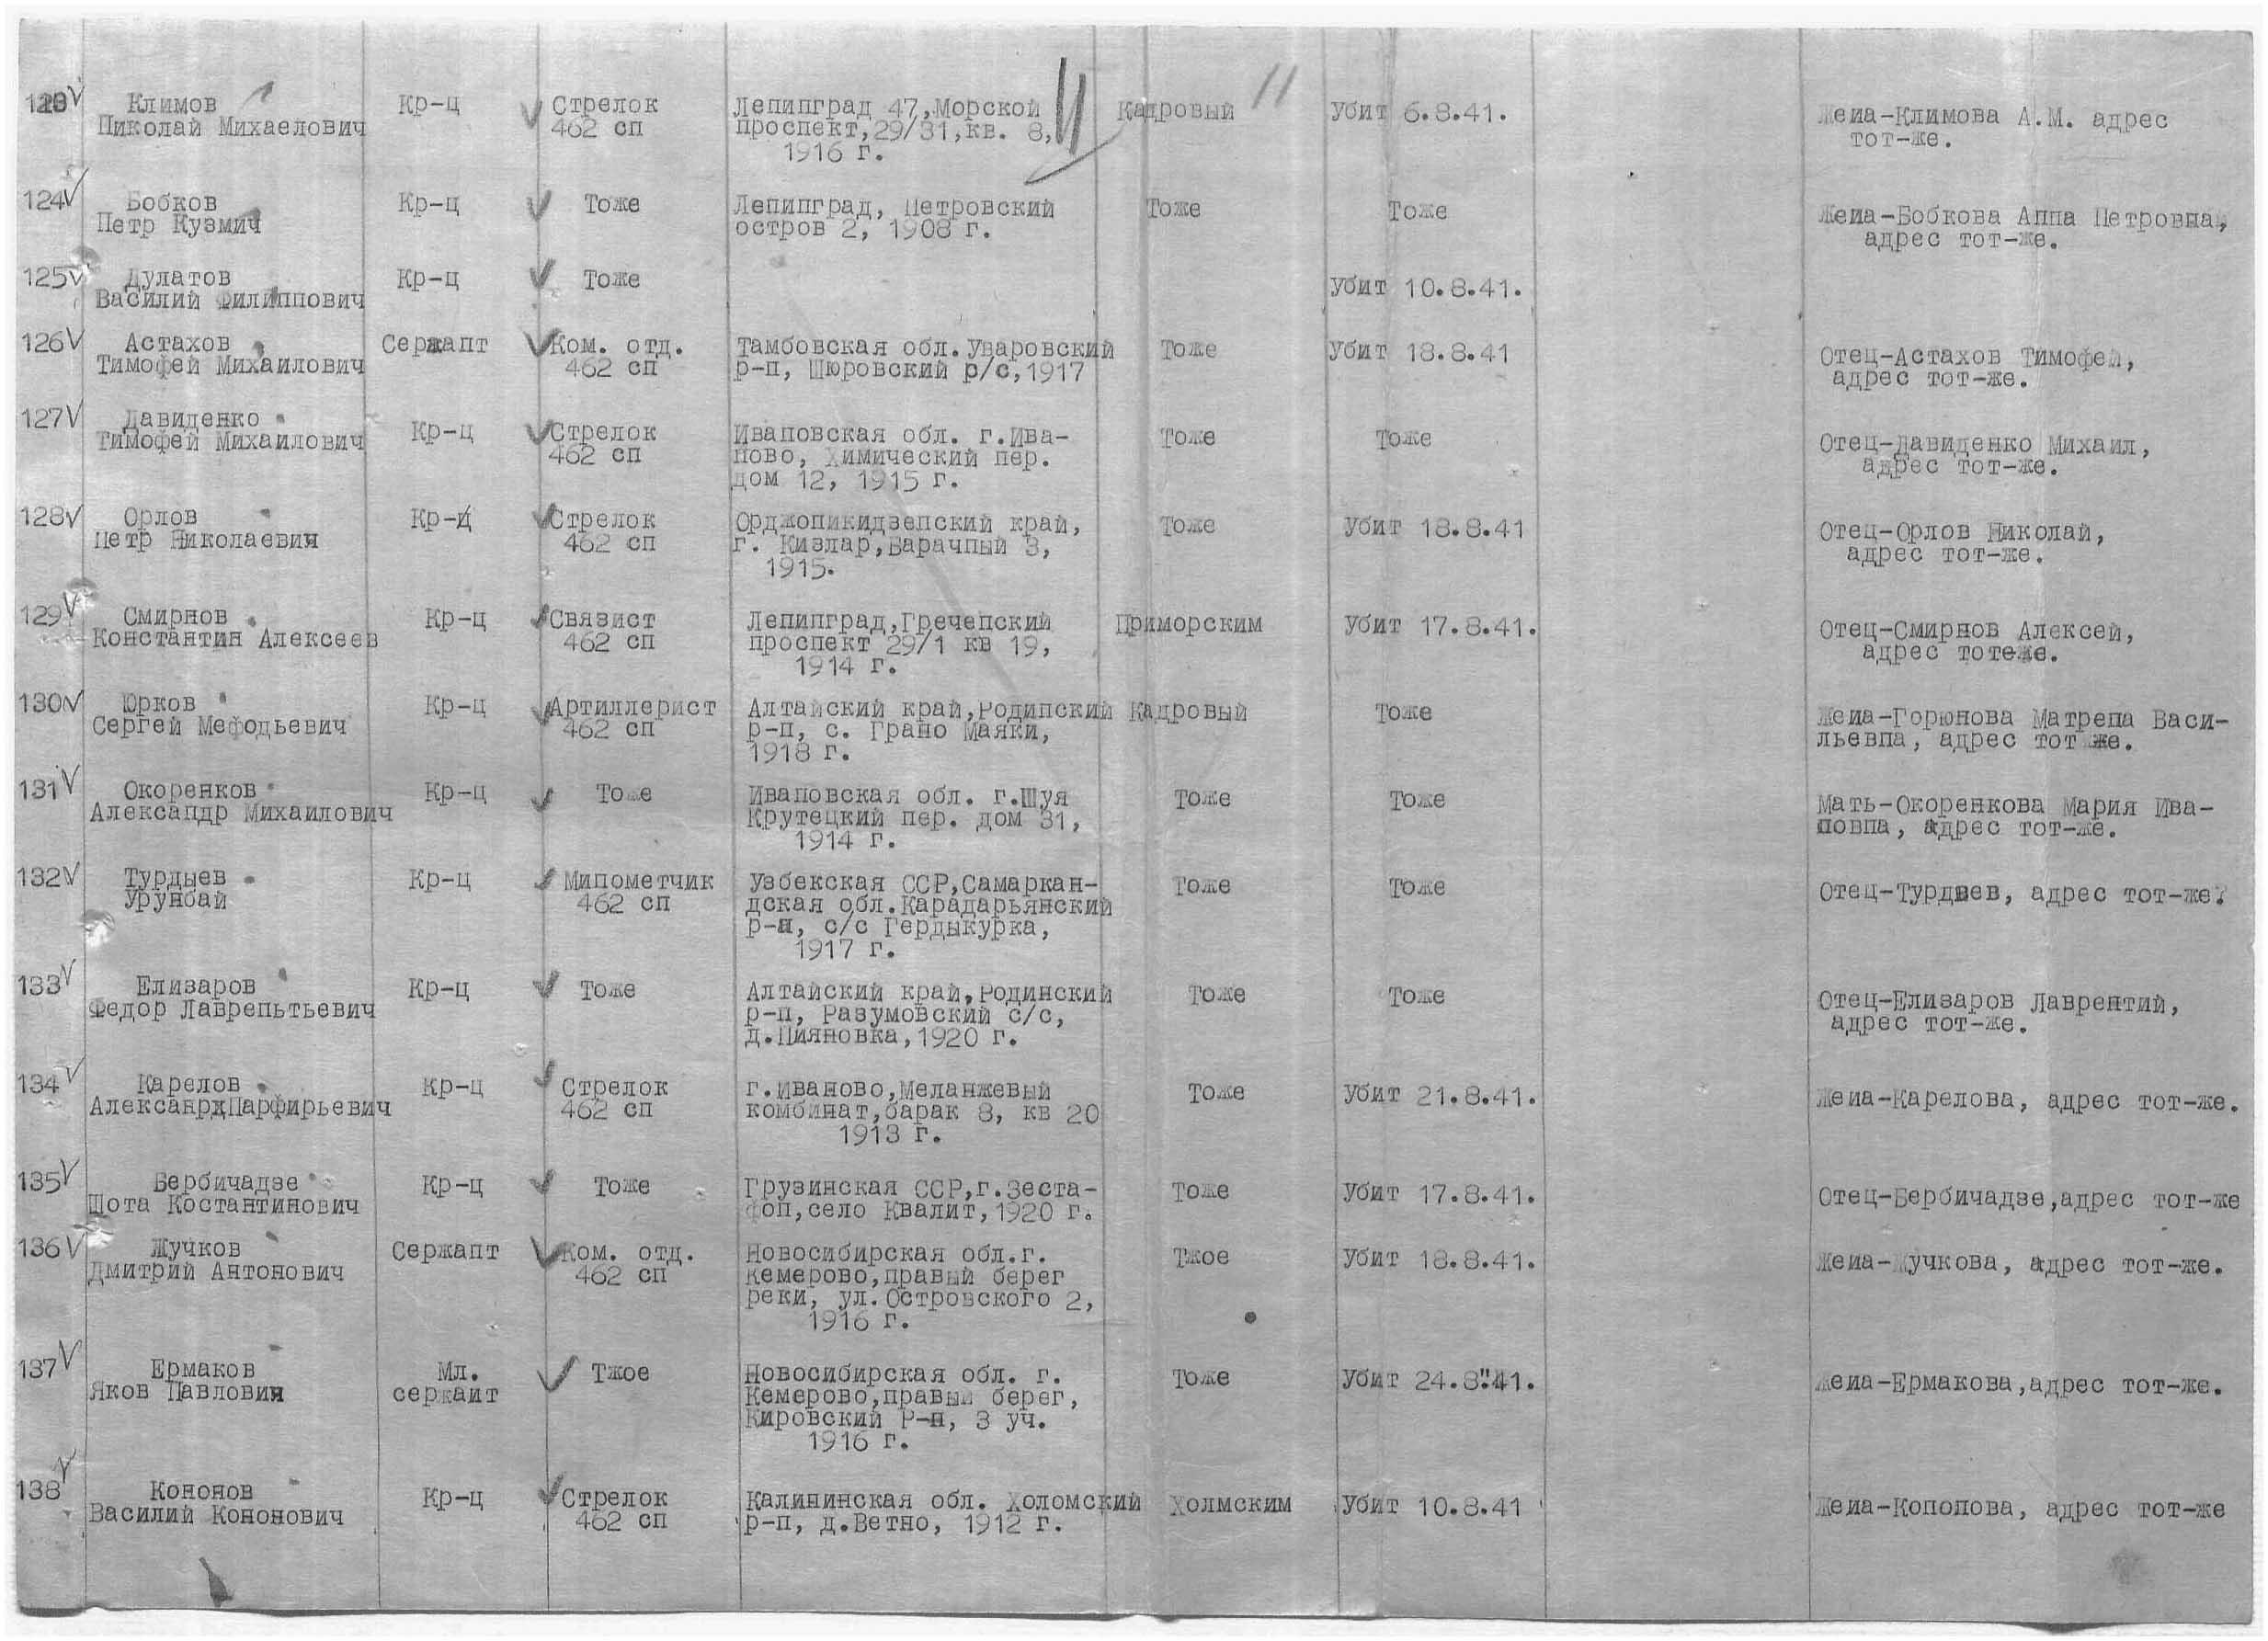 Климов Кр-ц Стрелок Лепипград 47,Морской Кадровый Убит 6.8.41. Жеиа-Климова А.М. адрес
Николай Михаелович 462 сп проспект,29/31,кв. 8, тот-же.
1916 г.
124 Бобков Кр-ц Тоже Лепипград, Петровский Тоже Тоже Жеиа-Бобкова Аппа Петровна,
Петр Кузмич остров 2, 1908 г. адрес тот-же.
125 Дулатов Кр-ц Тоже Убит 10.8.41.
Василий Филиппович
126 Астахов Сержапт Ком. отд. Тамбовская обл.Уваровский Тоже Убит 18.8.41 Отец-Астахов Тимофей,
Тимофей Михаилович 462 сп р-п, Шюровский р/с,1917 адрес тот-же.
127 Давиденко Кр-ц Стрелок Иваповская обл. г.Ива- Тоже Тоже Отец-Давиденко Михаил,
Тимофей Михаилович 462 сп пово, Химический пер. адрес тот-же.
дом 12, 1915 г.
128 Орлов Кр-ц Стрелок Орджопикидзепский край, Тоже Убит 18.8.41 Отец-Орлов Николай,
Петр Николаевич 462 сп г. Кизлар,Барачпый 3, адрес тот-же.
1915.
129 Смирнов Кр-ц Связист Лепипград,Гречепский Приморским Убит 17.8.41. Отец-Смирнов Алексей,
Константин Алексеев 462 сп проспект 29/1 кв 19, адрес тот-же.
1914 г.
130 Юрков Кр-ц Артиллерист Алтайский край,Родипский Кадровый Тоже Жеиа-Горюнова Матрепа Васи-
Сергей Мефодьевич 462 сп р-п, с. Грано Маяки, льевпа, адрес тот же.
1918 г.
131 Окоренков Кр-ц Тоже Иваповская обл. г.Шуя Тоже Тоже Мать-Окоренкова Мария Ива-
Алексапдр Михаилович Крутецкий пер. дом 31, повпа, адрес тот-же.
1914 г.
132 Турдыев Кр-ц Мипометчик Узбекская ССР,Самаркан- Тоже Тоже Отец-Турдыев, адрес тот-же.
Урунбай 462 сп дская обл.Карадарьянский
р-н, с/с Гердыкурка,
1917 г.
133 Елизаров Кр-ц Тоже Алтайский край,Родинский Тоже Тоже Отец-Елизаров Лаврентий,
Федор Лаврепьтьевич р-п, Разумовский с/с, адрес тот-же.
д.Пияновка,1920 г.
134 Карелов Кр-ц Стрелок г.Иваново,Меланжевый Тоже Убит 21.8.41. Жеиа-Карелова, адрес тот-же.
Александр Парфирьевич 462 сп комбинат,барак 8, кв 20
1913 г.
135 Бербичадзе Кр-ц Тоже Грузинская ССР,г.Зеста- Тоже Убит 17.8.41. Отец-Бербичадзе,адрес тот-же
Шота Костантинович фоп,село Квалит,1920 г.
136 Жучков Сержапт Ком. отд. Новосибирская обл.г. Тжое Убит 18.8.41. Жеиа-Жучкова, адрес тот-же.
Дмитрий Антонович 462 сп Кемерово,правый берег
реки, ул.Островского 2,
1916 г.
137 Ермаков Мл. Тжое Новосибирская обл. г. Тоже Убит 24.8.41. Жеиа-Ермакова,адрес тот-же.
Яков Павлович сержант Кемерово,правый берег,
Кировский Р-н, 3 уч.
1916 г.
138 Кононов Кр-ц Стрелок Калининская обл. Холомский Холмским Убит 10.8.41 Жеиа-Копопова, адрес тот-же
Василий Кононович 462 сп р-п, д.Ветно, 1912 г.